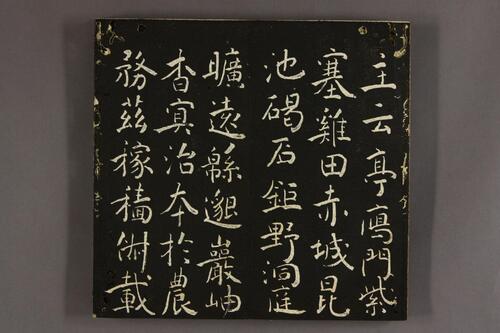 主云亭鴈門紫
塞雞田赤城昆
池碣石鉅野洞庭
曠遠緜邈巖岫
杳冥治本於農
務茲稼穡俶載